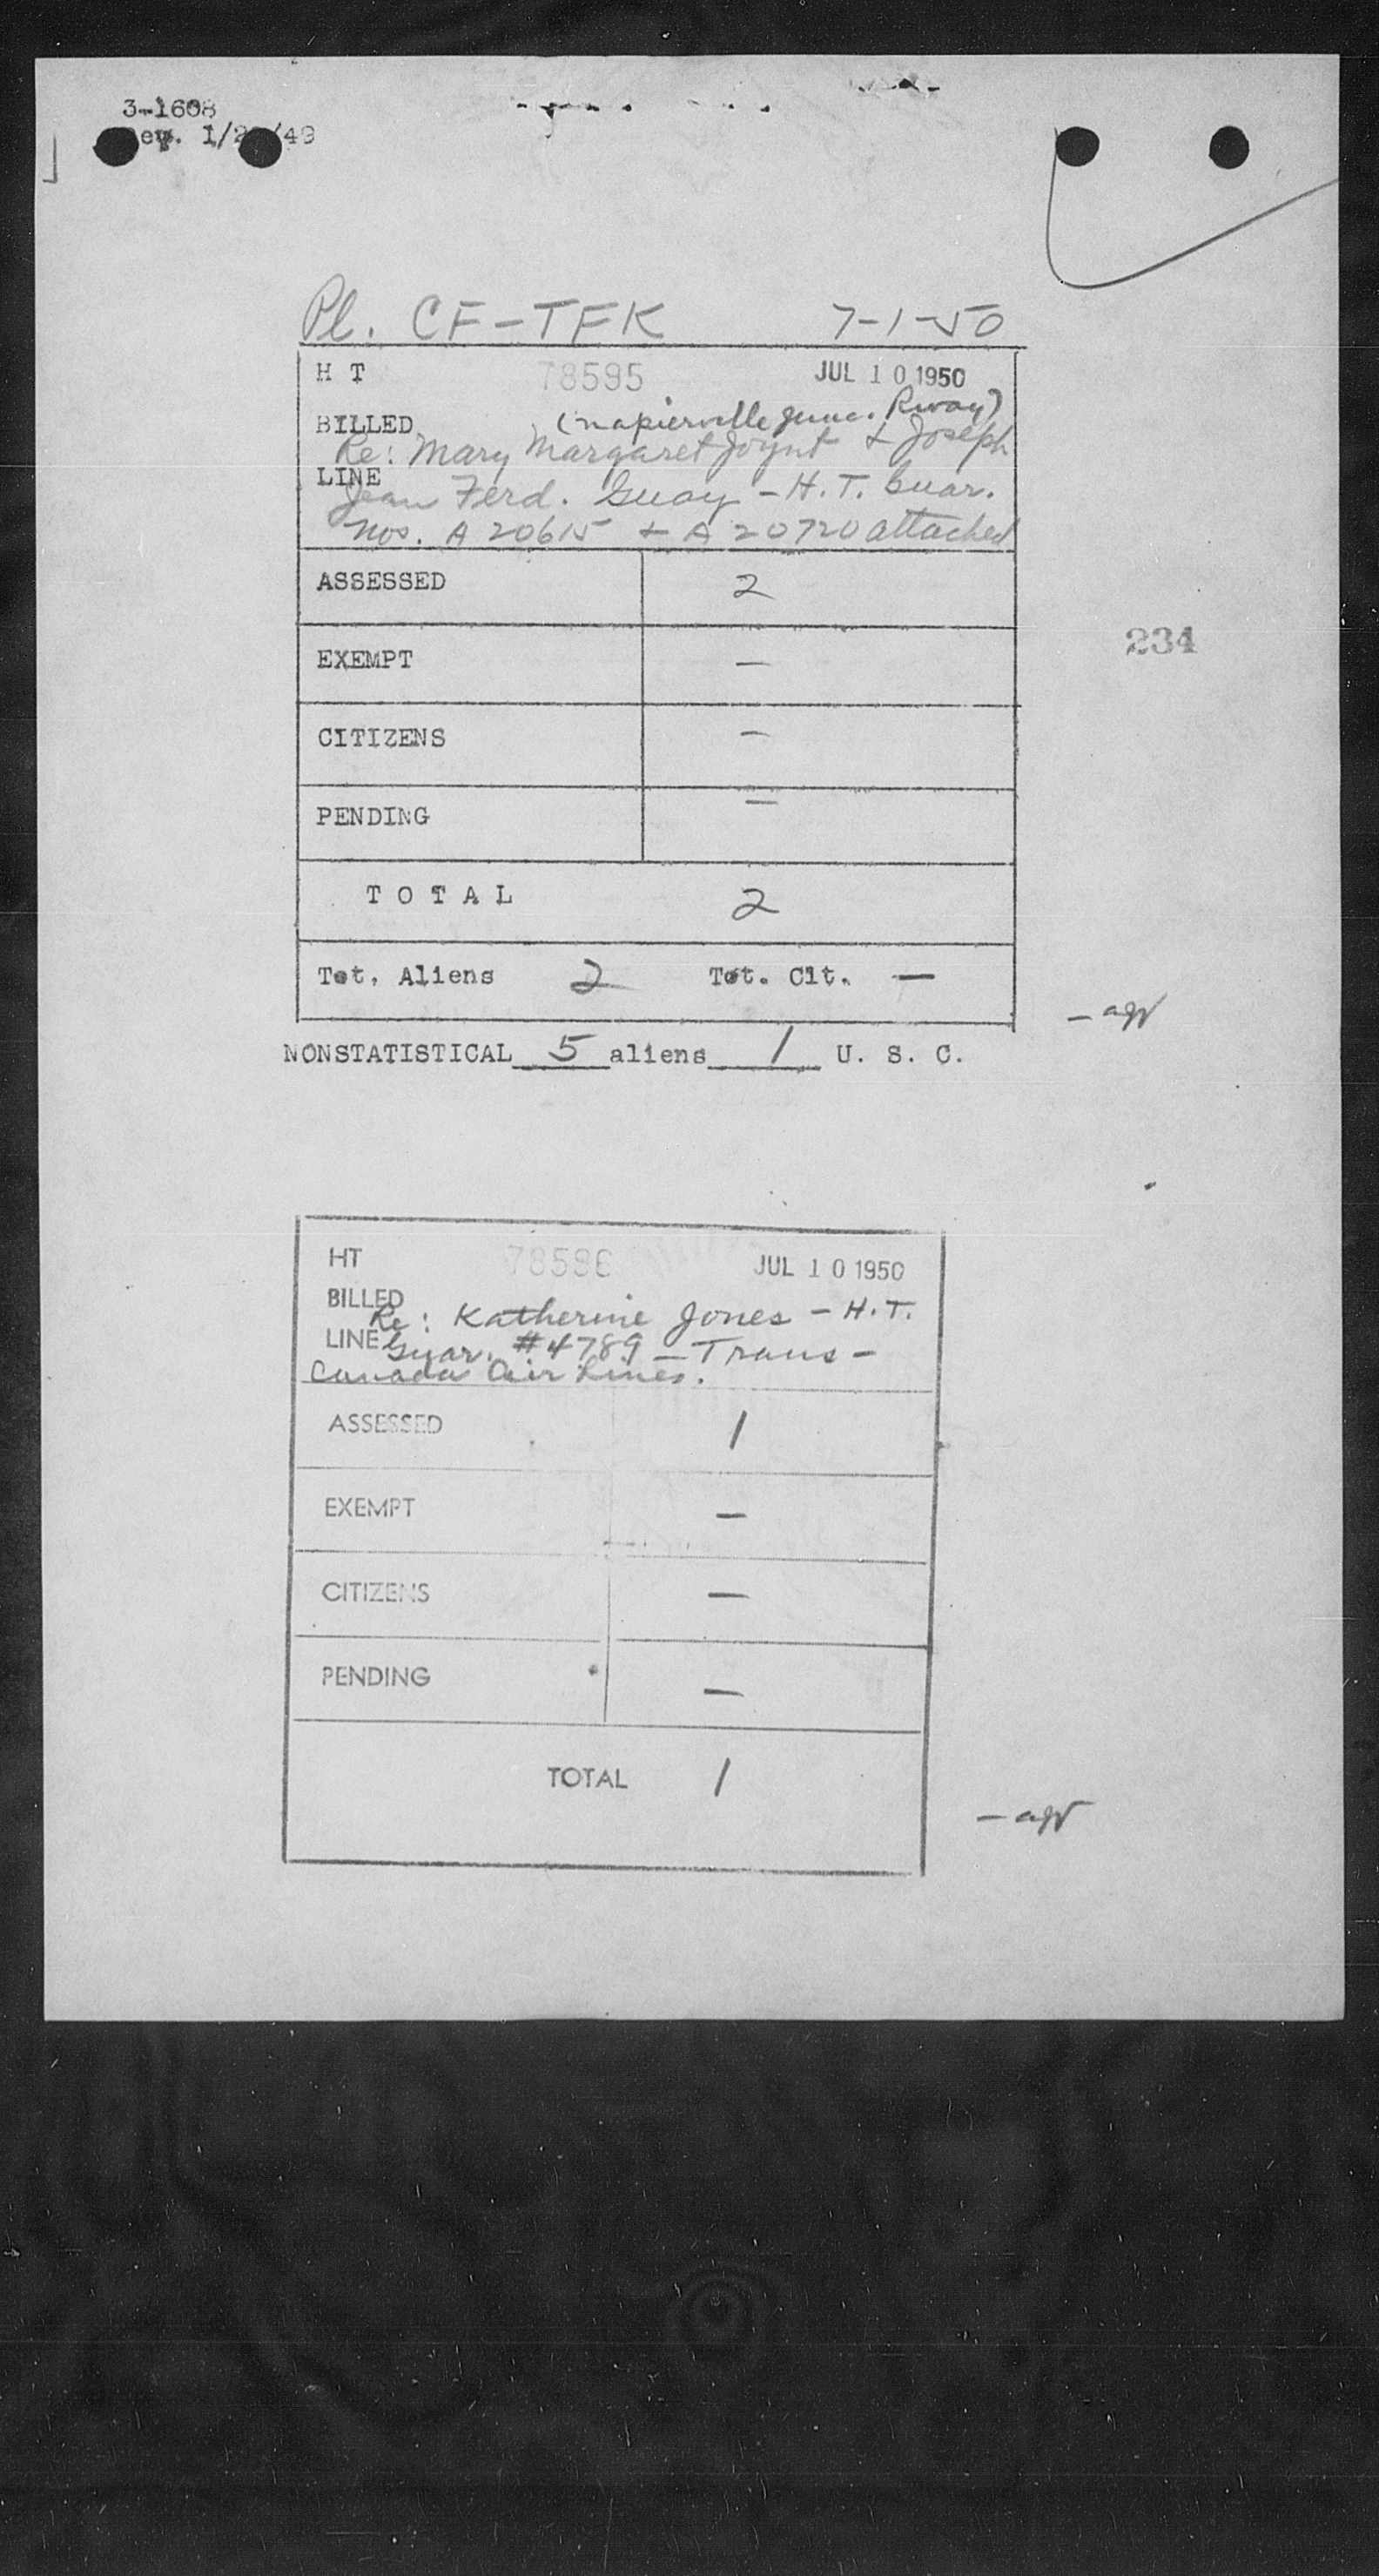 3-1608
Rev. 1/2 /49
Pl. CF-TFK 7-1-50
H T 78595 JUL 10 1950
BILLED (Napierville Junc. Rway)
Re: Mary Margaret Joynt & Joseph
LINE
Jean Ferd. Guay - H.T. Guar.
Nos. A 20615 & A 20720 attached
ASSESSED 2
EXEMPT —
CITIZENS —
PENDING =
234
TOTAL 2
Tot. Aliens 2 Tot. Cit. —
NONSTATISTICAL 5 aliens 1 U. S. C.
HT 78596 JUL 10 1950
BILLED
Re: Katherine Jones - H.T.
LINE Guar. #4789 - Trans-
Canada Air Lines.
ASSESSED 1
EXEMPT —
CITIZENS —
PENDING —
TOTAL 1